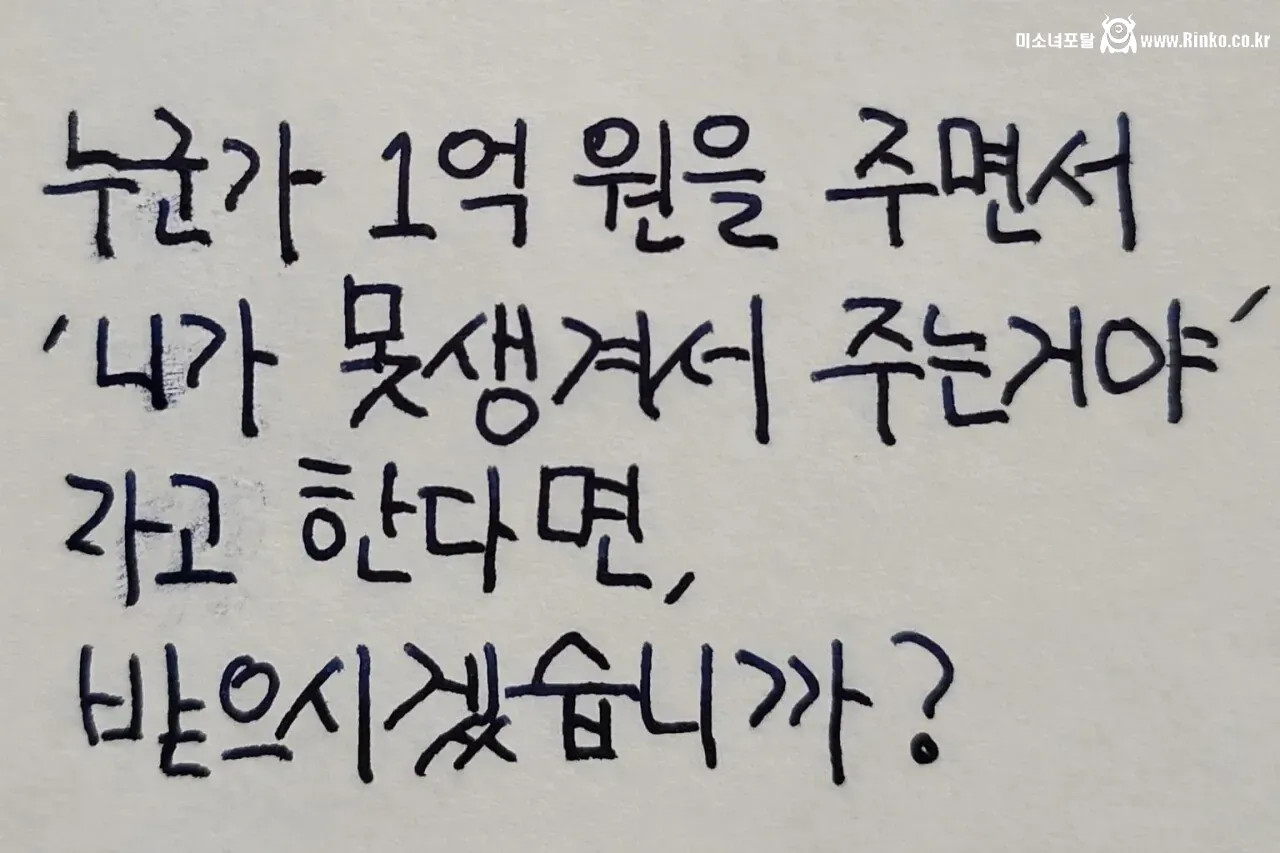 미소녀포탈 www.Rinko.co.kr
누군가 1억 원을 주면서
'니가 못생겨서 주는거야'
라고 한다면,
받으시겠습니까?